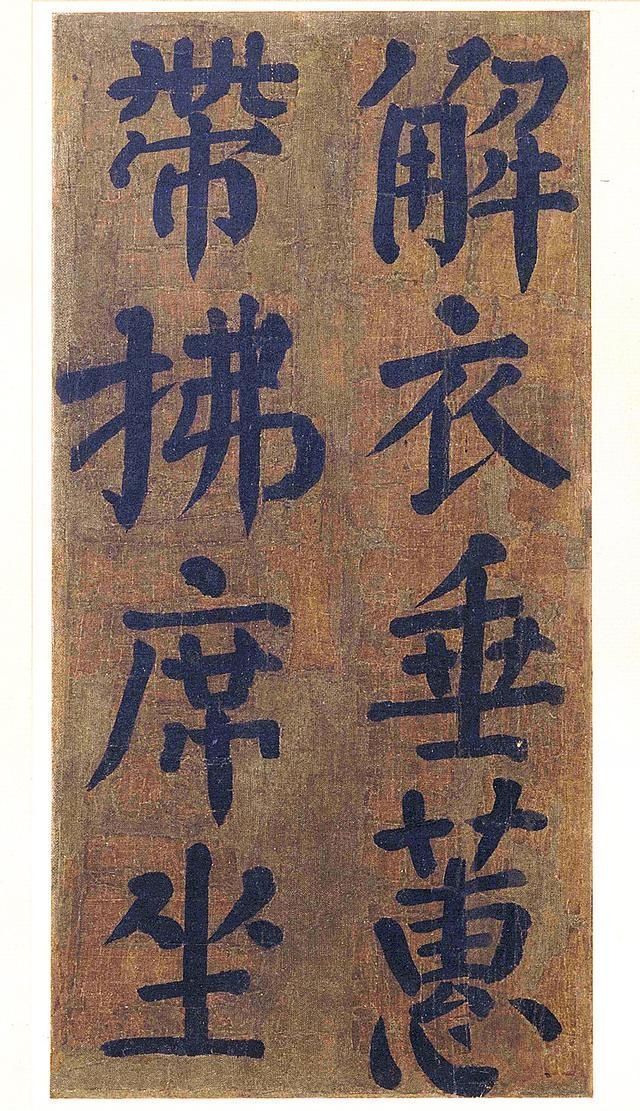 解衣垂蕙
帶拂席坐